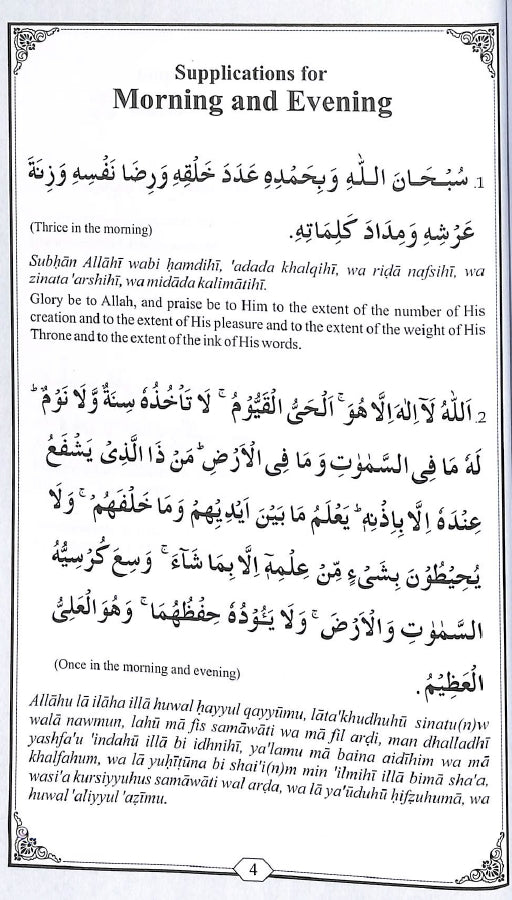 Supplications for
Morning and Evening
1. سُبْحَانَ اللّٰهِ وَبِحَمْدِهِ عَدَدَ خَلْقِهِ وَرِضَا نَفْسِهِ وَزِنَةَ
عَرْشِهِ وَمِدَادَ كَلِمَاتِهِ.
(Thrice in the morning)
Subḥān Allāhī wabi ḥamdihī, 'adada khalqihī, wa riḍā nafsihī, wa
zinata 'arshihī, wa midāda kalimātihī.
Glory be to Allah, and praise be to Him to the extent of the number of His
creation and to the extent of His pleasure and to the extent of the weight of His
Throne and to the extent of the ink of His words.
2. اَللّٰهُ لَآ اِلٰهَ اِلَّا هُوَ ۚ اَلْحَىُّ الْقَيُّوْمُ ۚ لَا تَاْخُذُهٗ سِنَةٌ وَّلَا نَوْمٌ ؕ
لَهٗ مَا فِى السَّمٰوٰتِ وَ مَا فِى الْاَرْضِ ؕ مَنْ ذَا الَّذِىْ يَشْفَعُ
عِنْدَهٗ اِلَّا بِاِذْنِهٖ ؕ يَعْلَمُ مَا بَيْنَ اَيْدِيْهِمْ وَمَا خَلْفَهُمْ ۚ وَلَا
يُحِيْطُوْنَ بِشَىْءٍ مِّنْ عِلْمِهٖٓ اِلَّا بِمَا شَآءَ ۚ وَسِعَ كُرْسِيُّهُ
السَّمٰوٰتِ وَالْاَرْضَ ۚ وَلَا يَـُٔوْدُهٗ حِفْظُهُمَا ۚ وَهُوَ الْعَلِىُّ
الْعَظِيْمُ.
(Once in the morning and evening)
Allāhu lā ilāha illā huwal ḥayyul qayyūmu, lāta'khudhuhū sinatu(n)w
walā nawmun, lahū mā fis samāwāti wa mā fil arḍi, man dhalladhī
yashfa'u 'indahū illā bi idhnihī, ya'lamu mā baina aidīhim wa mā
khalfahum, wa lā yuḥīṭūna bi shai'i(n)m min 'ilmihī illā bimā sha'a,
wasi'a kursiyyuhus samāwāti wal arḍa, wa lā ya'ūduhū ḥifẓuhumā, wa
huwal 'aliyyul 'aẓīmu.
4